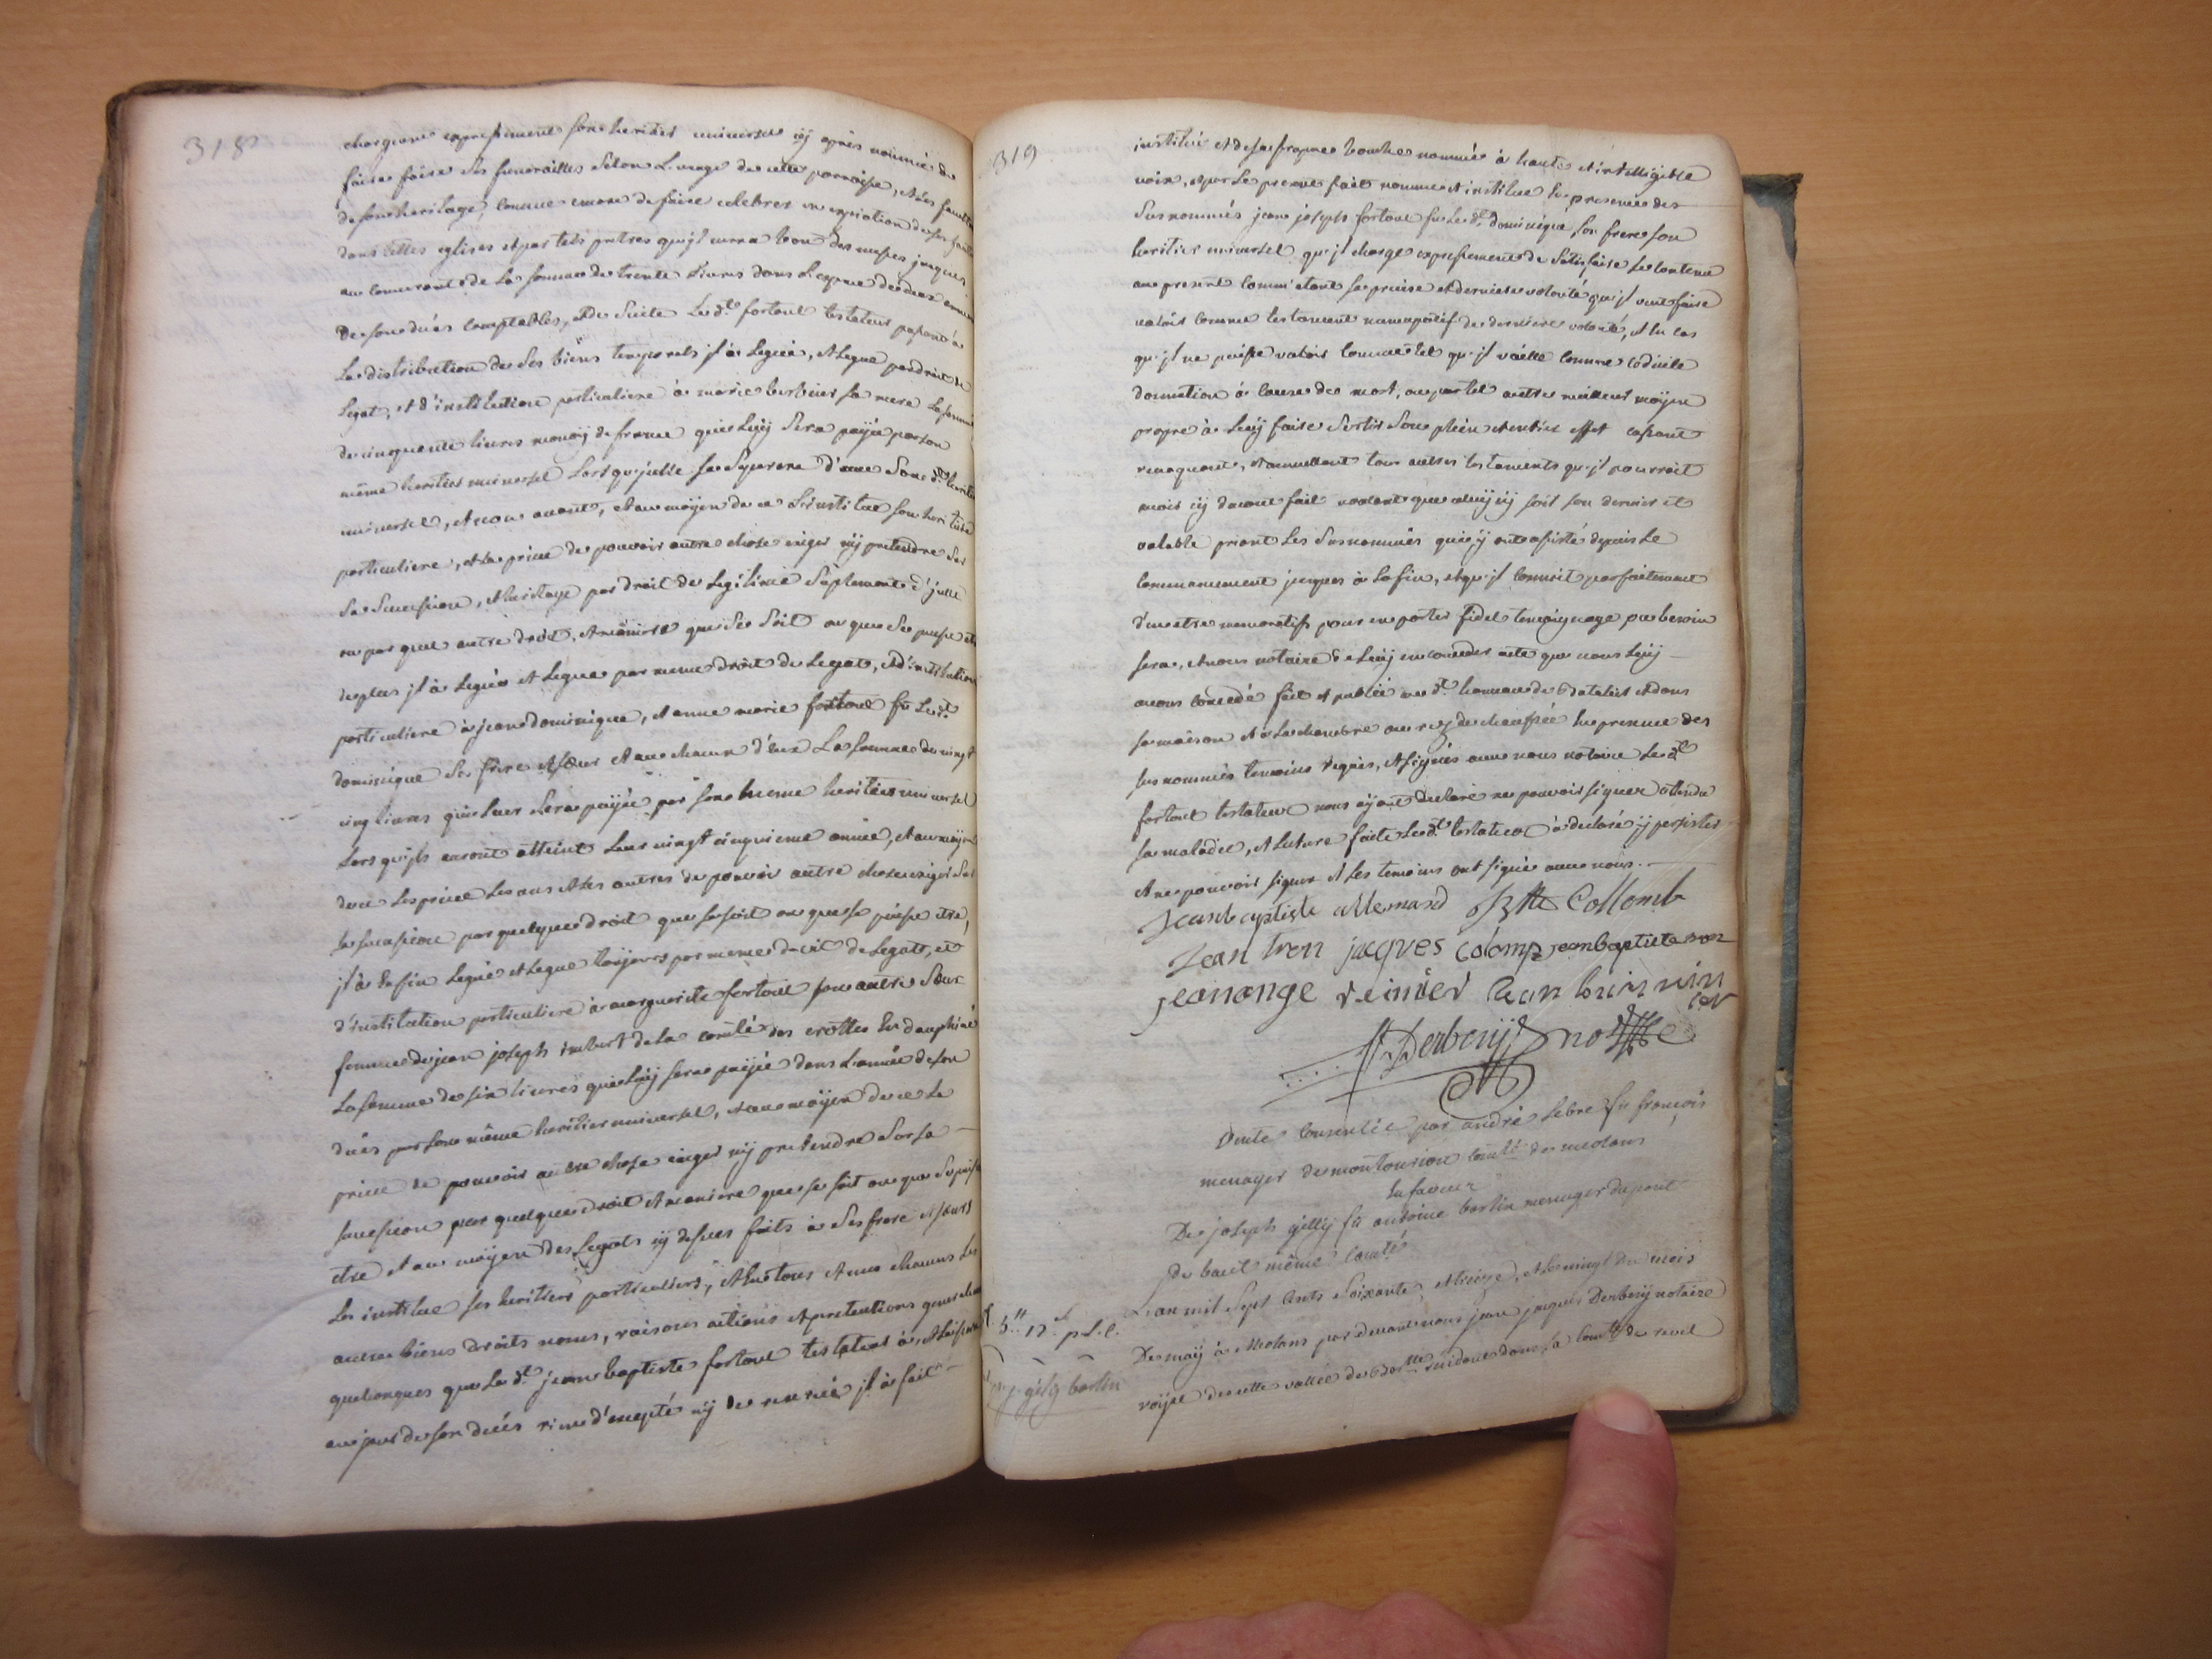 318
chargeant expressement son heritier universel cy apres nommé de
faire faire ses funerailles selon L'usage de cette parroisse, et des facultés
de son heritage, comme encore de faire celebrer en expiation de ses fautes
dans telles eglises et par tels pretres qu'jl verra bon des messes jusques
au concurrent de La somme de trente Livres dans L'espace de deux années
De son décés comptables, et de Suite Le dt fortoul testateur passant à
La distribution de ses biens temporels jl à Legué, et Legue par droit de
Legat, et d'institution particuliere à marie berbeier sa mere La somme
de cinquante livres monoij de france qui Luij Sera païée par son
même heritier universel Lors qu'jelle se Separera d'avec Son dt heritier
universel, et non avant, et au moÿen de ce L'institue son heritiere
particuliere, et La prive de pouvoir autre chose exiger nÿ pretendre Sur
Sa Succession, et heritage par droit de Legitime Suplement d'jcelle
ou par quel autre droit, et maniere que Ce Soit ou que Se puisse etre
de plus jl à Legué et Legue par meme droit de Legat, et d'institution
particuliere à jean dominique, et anne marie fortoul fû Le dt
dominique Ses frere et sœur et a un chacun d'eux La Somme de vingt
cinq livres qui Leur Sera païée par son meme heritier universel
Lors qu'jls auront atteint Leur vingt cinquieme année, et au moÿen
de ce Les prive Les uns et Les autres de pouvoir autre chose exiger Sur
sa succession par quelque droit que se soit ou que se puisse etre,
jl à Enfin Legué et Legue toujours par meme droit de Legat, et
d'institution particuliere à marguerite fortoul son autre Sœur
femme de jean joseph imbert de la comté des crottes En dauphiné
La somme de six livres qui Luij sera païée dans L'année de son
décés par son même heritier universel, et au moÿen de ce La
prive de pouvoir autre chose exiger nÿ pretendre Sur sa
succession par quelque droit et maniere que se soit ou que se puisse
etre et au moÿen des Legats cÿ dessus faits à Ses frere et sœurs
Les institue ses heritiers particuliers, et En tous et uns chacuns Les
autres biens droits noms, raisons actions et pretentions generalement
quelconques que Le dt jean baptiste fortoul testateur à, et Laissera
au jour de son décés rien d'excepté nÿ de reservé jl à fait
319
institué et de sa propre bouche nommé à haute et intelligible
voix, et par Le present fait nomme et institue En presence des
Susnommés jean joseph fortoul fû Le dt dominique, Son frere son
heritier universel qu'jl charge expressement de Satisfaire Le contenu
au present comm'etant sa precise et derniere volonté qu'jl veut faire
valoir comme testament nuncupatif de derniere volonté, et En cas
qu'jl ne puisse valoir comme tel qu'jl vaille comme codicile
donnation à cause de mort, ou par tel autre meilleur moÿen
propre à Luij faire Sortir Son plein et entier effet cassant
revoquant, et annullant tous autres testaments qu'jl pourroit
avoir cÿ devant fait voulant que celuÿ cÿ soit son dernier et
valable priant Les Susnommés qui ÿ ont assisté depuis Le
commencement jusques à La fin, et qu'jl connoit parfaitement
d'en etre memoratifs pour en porter fidel temoignage ou besoin
sera, et nous notaire de Luij en conceder acte que nous Luij
avons concedé fait et publié au dt hameau de Batalier et dans
sa maison et à La chambre au rez de chaussée En presence des
sus nommés temoins requis, et signés avec nous notaire Le dt
fortoul testateur nous aÿant declaré ne pouvoir signer attendu
sa maladie, et Lecture faite Le dt testateur à declaré ÿ persister
et ne pouvoir signer et Les temoins ont signé avec nous.
Jean baptiste allemand J Bte Collomb
Jean tron jacques colomp jean baptiste
jeanange reinier
Derbeziÿ nore
Vente Consentie par andré Lebre fû françois
menager de comté de meolans
En faveur
De joseph gilly fû antoine bertin menager du pont
du haut même Comté
L'an mil Sept Cents Soixante, et treize, et Le vingt du mois
De maÿ à Meolans par devant nous jean jacques Derbeziÿ notaire
roÿal de cette vallée de Barlle residant dans La Comté de revel
5" 12 s p L. C.
gilly bertin